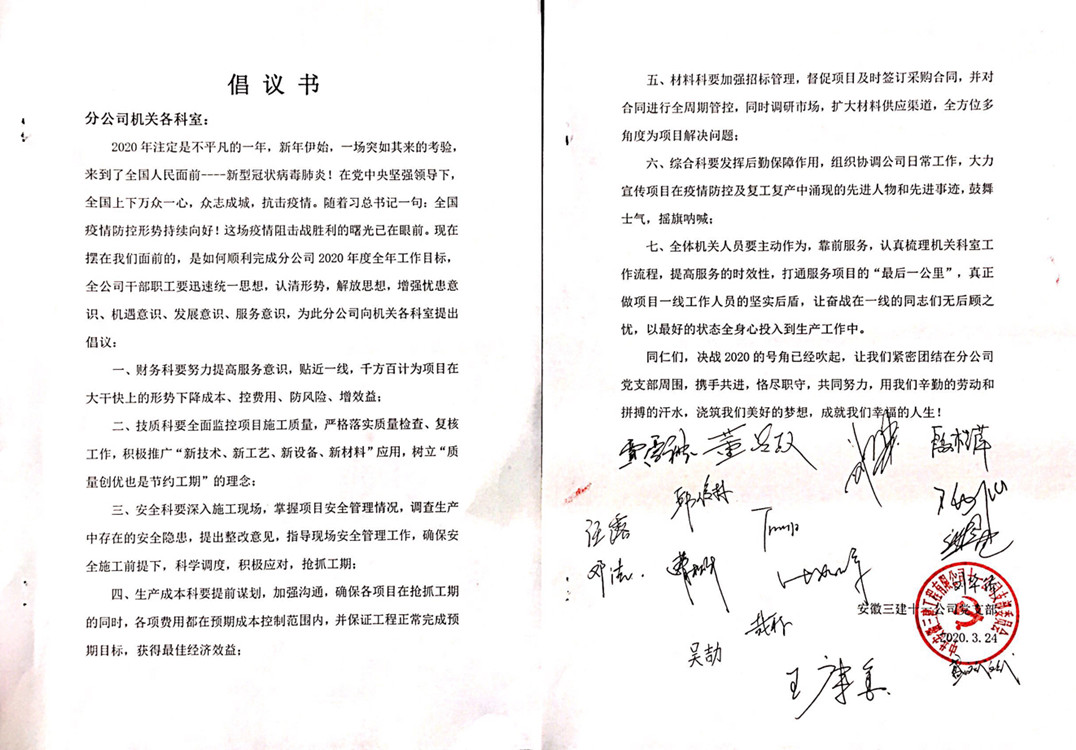 倡议书
分公司机关各科室：
2020年注定是不平凡的一年，新年伊始，一场突如其来的考验，
来到了全国人民面前----新型冠状病毒肺炎！在党中央坚强领导下，
全国上下万众一心，众志成城，抗击疫情。随着习总书记一句：全国
疫情防控形势持续向好！这场疫情阻击战胜利的曙光已在眼前。现在
摆在我们面前的，是如何顺利完成分公司2020年度全年工作目标，
全公司干部职工要迅速统一思想，认清形势，解放思想，增强忧患意
识、机遇意识、发展意识、服务意识，为此分公司向机关各科室提出
倡议：
一、财务科要努力提高服务意识，贴近一线，千方百计为项目在
大干快上的形势下降成本、控费用、防风险、增效益；
二、技质科要全面监控项目施工质量，严格落实质量检查、复核
工作，积极推广“新技术、新工艺、新设备、新材料”应用，树立“质
量创优也是节约工期”的理念；
三、安全科要深入施工现场，掌握项目安全管理情况，调查生产
中存在的安全隐患，提出整改意见，指导现场安全管理工作，确保安
全施工前提下，科学调度，积极应对，抢抓工期；
四、生产成本科要提前谋划，加强沟通，确保各项目在抢抓工期
的同时，各项费用都在预期成本控制范围内，并保证工程正常完成预
期目标，获得最佳经济效益；
五、材料科要加强招标管理，督促项目及时签订采购合同，并对
合同进行全周期管控，同时调研市场，扩大材料供应渠道，全方位多
角度为项目解决问题；
六、综合科要发挥后勤保障作用，组织协调公司日常工作，大力
宣传项目在疫情防控及复工复产中涌现的先进人物和先进事迹，鼓舞
士气，摇旗呐喊；
七、全体机关人员要主动作为，靠前服务，认真梳理机关科室工
作流程，提高服务的时效性，打通服务项目的“最后一公里”，真正
做项目一线工作人员的坚实后盾，让奋战在一线的同志们无后顾之
忧，以最好的状态全身心投入到生产工作中。
同仁们，决战2020的号角已经吹起，让我们紧密团结在分公司
党支部周围，携手共进，恪尽职守，共同努力，用我们辛勤的劳动和
拼搏的汗水，浇筑我们美好的梦想，成就我们幸福的人生！
汪露
邓洁
吴劼
安徽三建十 公司党支部
2020.3.24